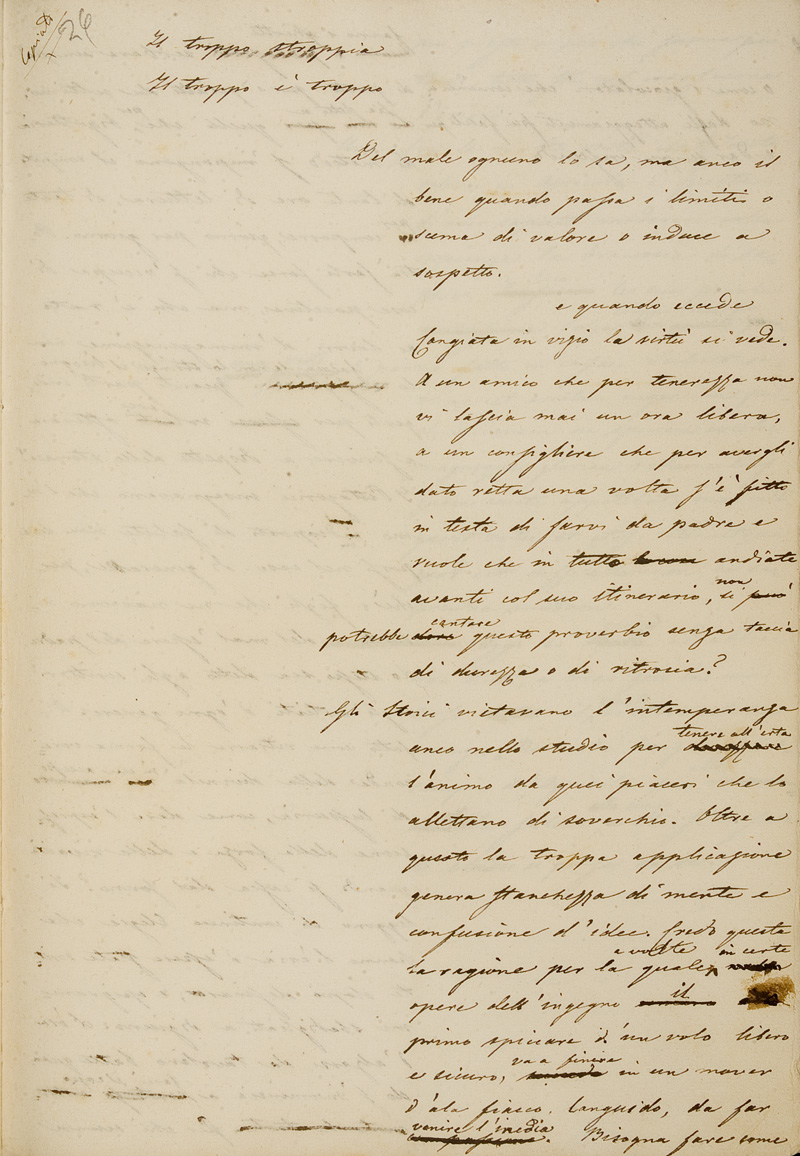 Copiato
26
Il troppo stroppia
Il troppo è troppo
Del male ognuno lo sa, ma anco il
bene quando passa i limiti o
scema di valore o induce a
sospetto.
e quando eccede
Cangiata in vizio la virtù si vede.
A un amico che per tenerezza non
vi lascia mai un ora libera,
a un consigliere che per avergli
dato retta una volta s'è fitto
in testa di farvi da padre e
vuole che in tutto andiate
avanti col suo itinerario, non si può
potrebbe cantare questo proverbio senza taccia
di durezza o di ritrosia?
Gli Stoici vietavano l'intemperanza
anco nello studio per tenere all'erta
l'animo da quei piaceri che lo
allettano di soverchio. Oltre a
questo la troppa applicazione
genera stanchezza di mente e
confusione d'idee. Credo questa
la ragione per la quale a volte in certe
opere dell'ingegno il
primo spiccare d'un volo libero
e sicuro, va a finire in un mover
d'ala fiacco, languido, da far
venire l'inedia. Bisogna fare come